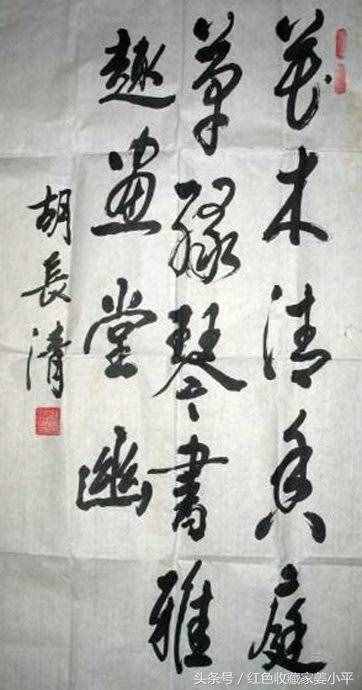 花木清香庭
草綠琴書雅
趣畫堂幽
胡長清
头条号 / 红色收藏家姜小平